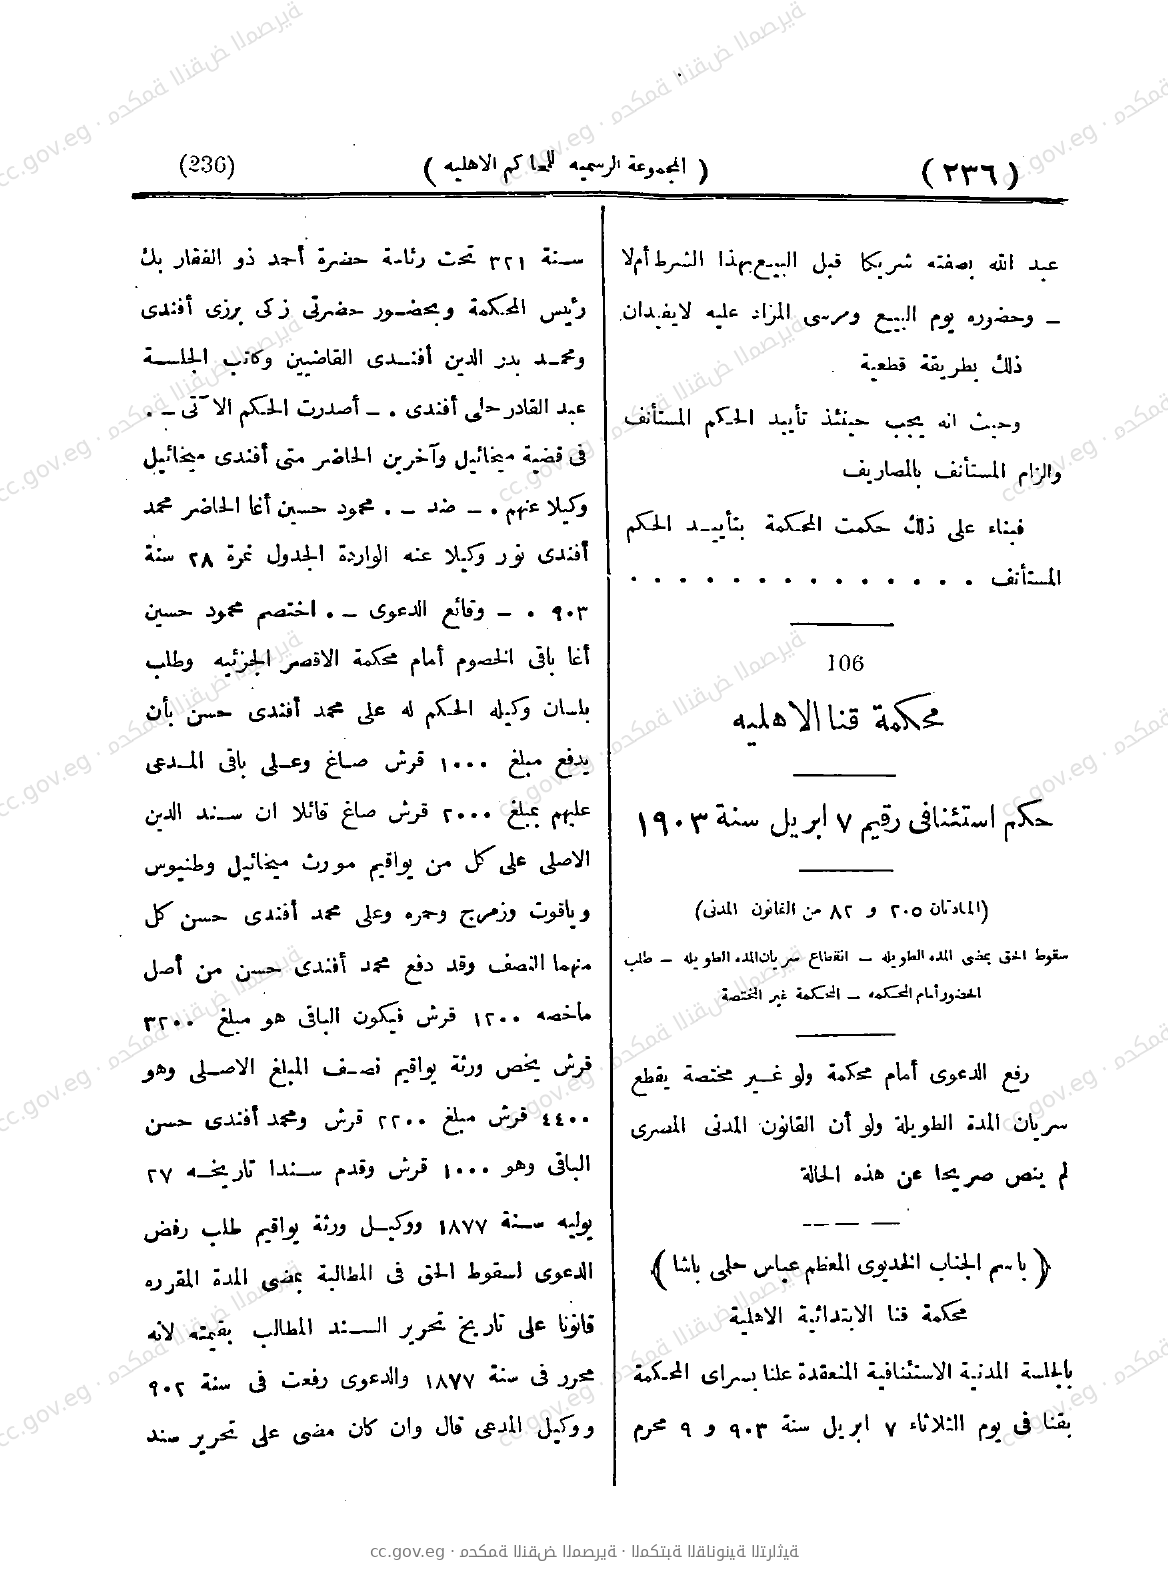 (٢٣٦) (المجموعة الرسميه للمحاكم الاهليه) (236)
عبد الله بصفته شريكا قبل البيع بهذا الشرط أم لا
ـ وحضوره يوم البيع ومرسى المزاد عليه لا يفيدان
ذلك بطريقة قطعية
وحيث انه يجب حينئذ تأييد الحكم المستأنف
والزام المستأنف بالمصاريف
فبناء على ذلك حكمت المحكمة بتأييد الحكم
المستأنف . . . . . . . . . . . . . .
106
محكمة قنا الاهليه
حكم استئنافى رقيم ٧ ابريل سنة ١٩٠٣
(المادتان ٢٠٥ و ٨٢ من القانون المدنى)
سقوط الحق بمضى المده الطويله ـ انقطاع سريان المده الطويله ـ طلب
الحضور أمام المحكمه ـ المحكمة غير المختصة
رفع الدعوى أمام محكمة ولو غير مختصة يقطع
سريان المدة الطويلة ولو أن القانون المدنى المصرى
لم ينص صريحا عن هذه الحالة
(باسم الجناب الخديوى المعظم عباس حلمى باشا)
محكمة قنا الابتدائية الاهلية
بالجلسة المدنية الاستئنافية المنعقدة علنا بسراى المحكمة
بقنا فى يوم الثلاثاء ٧ ابريل سنة ٩٠٣ و ٩ محرم
سنة ٣٢١ تحت رئاسة حضرة أحمد ذو الفقار بك
رئيس المحكمة وبحضور حضرتى زكى برزى أفندى
ومحمد بدر الدين أفندى القاضيين وكاتب الجلسة
عبد القادر حلمى أفندى . ـ أصدرت الحكم الآتى ـ .
فى قضية ميخائيل وآخرين الحاضر متى أفندى ميخائيل
وكيلا عنهم . ـ ضد ـ . محمود حسين أغا الحاضر محمد
أفندى نور وكيلا عنه الواردة الجدول نمرة ٢٨ سنة
٩٠٣ . ـ وقائع الدعوى ـ . اختصم محمود حسين
أغا باقى الخصوم أمام محكمة الاقصر الجزئيه وطلب
بلسان وكيله الحكم له على محمد أفندى حسن بأن
يدفع مبلغ ١٠٠٠ قرش صاغ وعلى باقى المدعى
عليهم بمبلغ ٢٠٠٠ قرش صاغ قائلا ان سند الدين
الاصلى على كل من يواقيم مورث ميخائيل وطنيوس
وياقوت وزمرج وحمره وعلى محمد أفندى حسن كل
منهما النصف وقد دفع محمد أفندى حسن من أصل
ماخصه ١٢٠٠ قرش فيكون الباقى هو مبلغ ٣٢٠٠
قرش يخص ورثة يواقيم نصف المبلغ الاصلى وهو
٤٤٠٠ قرش مبلغ ٢٢٠٠ قرش ومحمد أفندى حسن
الباقى وهو ١٠٠٠ قرش وقدم سندا تاريخه ٢٧
يوليه سنة ١٨٧٧ ووكيل ورثة يواقيم طلب رفض
الدعوى لسقوط الحق فى المطالبة بمضى المدة المقرره
قانونا على تاريخ تحرير السند المطالب بقيمته لانه
محرر فى سنة ١٨٧٧ والدعوى رفعت فى سنة ٩٠٢
ووكيل المدعى قال وان كان مضى على تحرير سند
cc.gov.eg · محكمة النقض المصرية · المكتبة القانونية التراثية